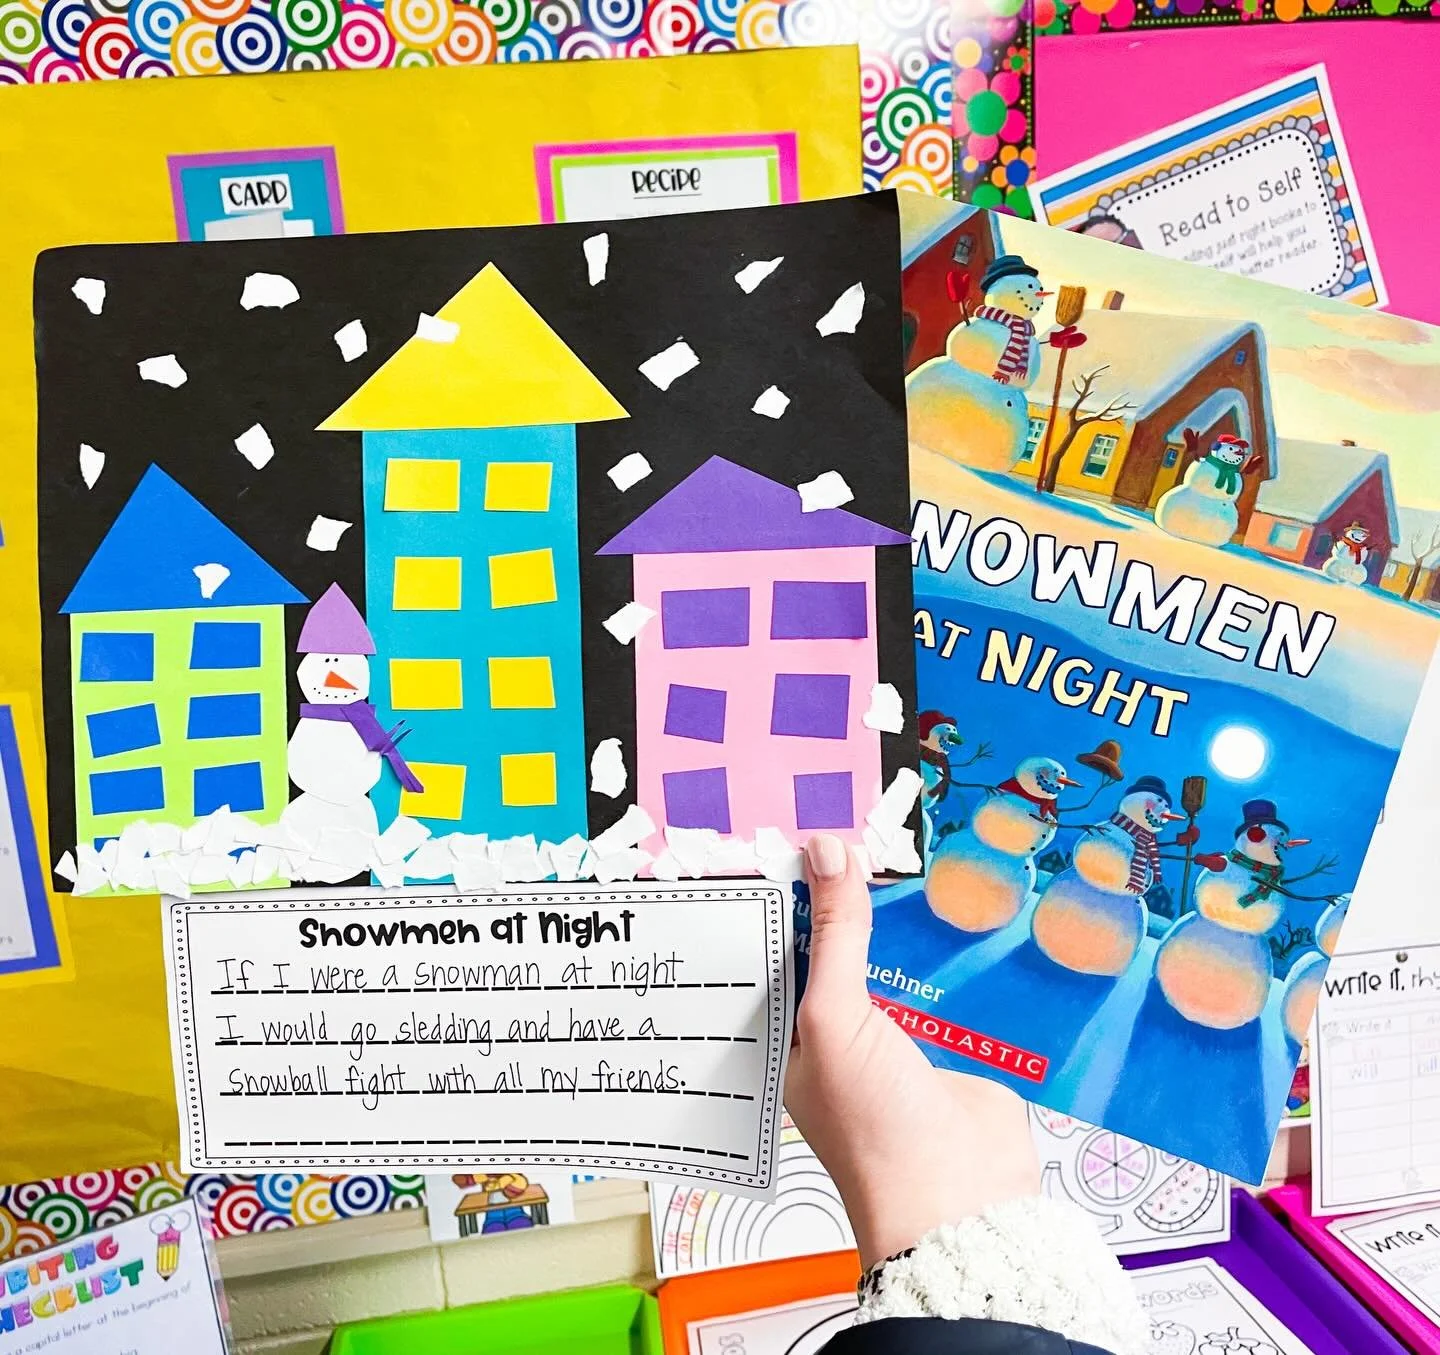 CARD
RECIPE
Read to Self
just right books to
self will help you
better reader.
NOWMEN
AT NIGHT
uehner
SCHOLASTIC
Snowmen at Night
If I were a snowman at night
I would go sledding and have a
snowball fight with all my friends.
WRITING
CHECKLIST
a capital letter at the beginning of
write it,
Write it
will
write it
words